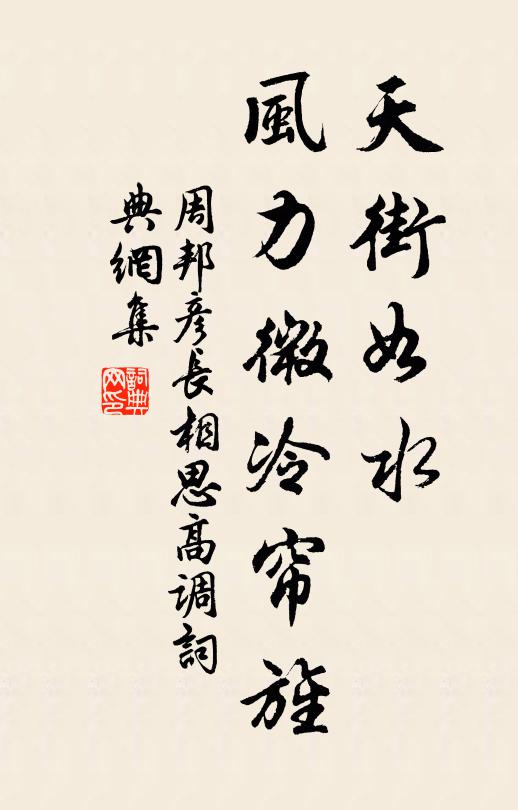 天街如水
風力微冷帘旌
周邦彦長相思高調詞
典網集
詞典網印